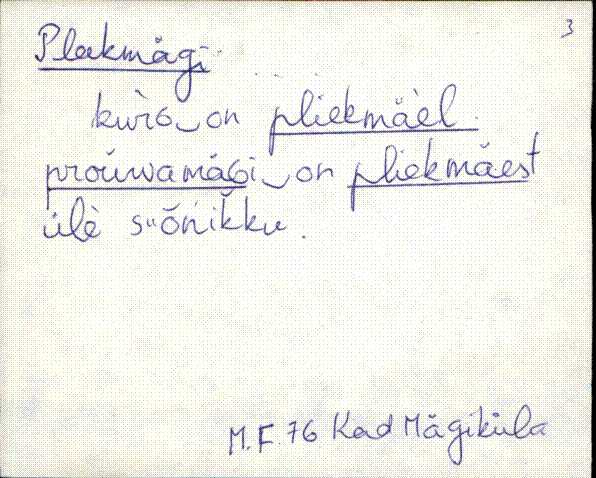 3
Pleekmägi
kùrò‿on pliekmäèl.
proùwamäGi‿on pliekmäest
ülè s̀ŏnikku.
M.F. 76 Kad Mägiküla